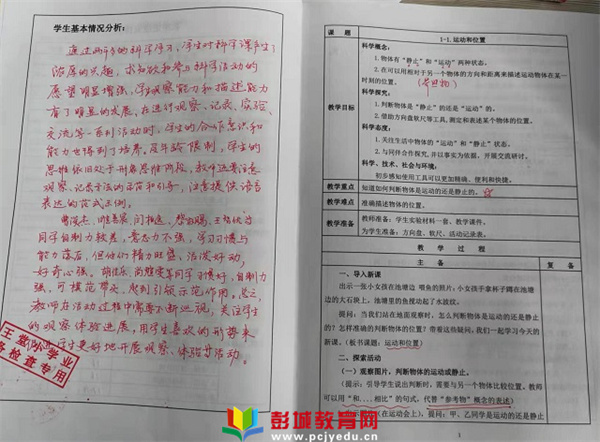 学生基本情况分析:
通过两年的科学学习,学生对科学课产生了
浓厚的兴趣,求知欲和参与科学活动的
愿望明显增强,学生观察能力和描述能力
有了明显的发展,在进行观察、记录、实验、
交流等一系列活动时,学生的合作意识和
能力也得到了培养。受年龄限制,学生的
思维依旧处于形象思维阶段,教师还要注意
观察、记录方法的示范和引导,注意提供语言
表达的范式示例。
同学自制力较差,意志力不强,学习习惯与
能力落后,但他们精力旺盛,活泼好动,
好奇心强。
等同学习惯好,自制力
强,可模范带头,起到引领示范作用。总之,
教师在活动过程中需要不断巡视,关注学
生的观察体验进展,用学生喜欢的形势来
学生更好地开展观察、体验等活动。
王堂小学业
务检查专用
课 题
1-1.运动和位置
教学目标
科学概念:
1.物体有“静止”和“运动”两种状态。
2.在可以用相对于另一个物体的方向和距离来描述运动物体在某一
时刻的位置。(参照物)
科学探究:
1.判断物体是“静止”的还是“运动”的。
2.借助方向盘软尺等工具,测定和表述某个物体的位置。
科学态度:
1.关注生活中物体的“运动”和“静止”状态。
2.与同伴合作探究,并以事实为依据,开展交流研讨。
科学、技术、社会与环境:
初步感知使用工具可以更加精确、便利和快捷。
教学重点
知道如何判断物体是运动的还是静止的。
教学难点
准确描述物体的位置。
教学准备
教师准备:学生实验材料一套、教学课件。
为学生准备:方向盘、软尺、活动记录表。
教 学 过 程
主 备
复 备
一、导入新课
出示一张小女孩在池塘边 喂鱼的照片:小女孩手拿杯子蹲在池塘
边的大石块上,池塘里的鱼搅动起了水波纹。
提问:当我们站在地面观察时,怎么判断物体的位置是运动的还是静止
的?怎样准确的判断物体的位置?带着这些疑问,我们一起学习今天的
新课。(板书课题:运动和位置)
二、探索活动
(一)观察图片,判断物体的运动或静止。
(提示:引导学生说出判断时,需要与另一个物体比较位置。教师
可以用“和...相比”的句式,代替“参考物”概念的表述)
(在运动会上),提问:甲、乙同学是运动的还是静止
1
彭城教育网
www.pcjyedu.cn